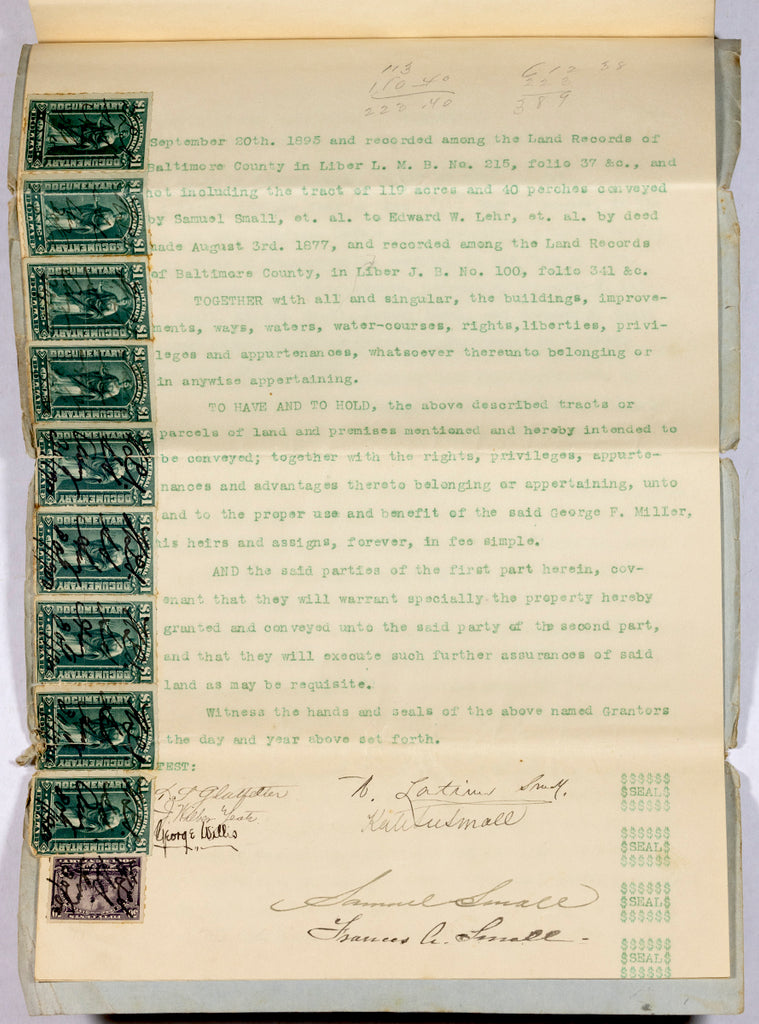 113
110 40
223 .40
612 38
223
389
September 20th. 1895 and recorded among the Land Records of
Baltimore County in Liber L. M. B. No. 215, folio 37 &c., and
not including the tract of 119 acres and 40 perches conveyed
by Samuel Small, et. al. to Edward W. Lehr, et. al. by deed
made August 3rd. 1877, and recorded among the Land Records
of Baltimore County, in Liber J. B. No. 100, folio 341 &c.
TOGETHER with all and singular, the buildings, improve-
ments, ways, waters, water-courses, rights,liberties, privi-
leges and appurtenances, whatsoever thereunto belonging or
in anywise appertaining.
TO HAVE AND TO HOLD, the above described tracts or
parcels of land and premises mentioned and hereby intended to
be conveyed; together with the rights, privileges, appurte-
nances and advantages thereto belonging or appertaining, unto
and to the proper use and benefit of the said George F. Miller,
his heirs and assigns, forever, in fee simple.
AND the said parties of the first part herein, cov-
enant that they will warrant specially the property hereby
granted and conveyed unto the said party of the second part,
and that they will execute such further assurances of said
land as may be requisite.
Witness the hands and seals of the above named Grantors
the day and year above set forth.
TEST:
George Willis
W. Latimer Small.
Kate Small
Samuel Small
Frances A. Small
$$$$$$
$SEAL$
$$$$$$
$$$$$$
$SEAL$
$$$$$$
$$$$$$
$SEAL$
$$$$$$
$$$$$$
$SEAL$
$$$$$$
$1 DOCUMENTARY
$1 DOCUMENTARY
$1 DOCUMENTARY
$1 DOCUMENTARY
$1 DOCUMENTARY
$1 DOCUMENTARY
$1 DOCUMENTARY
$1 DOCUMENTARY
$1 DOCUMENTARY